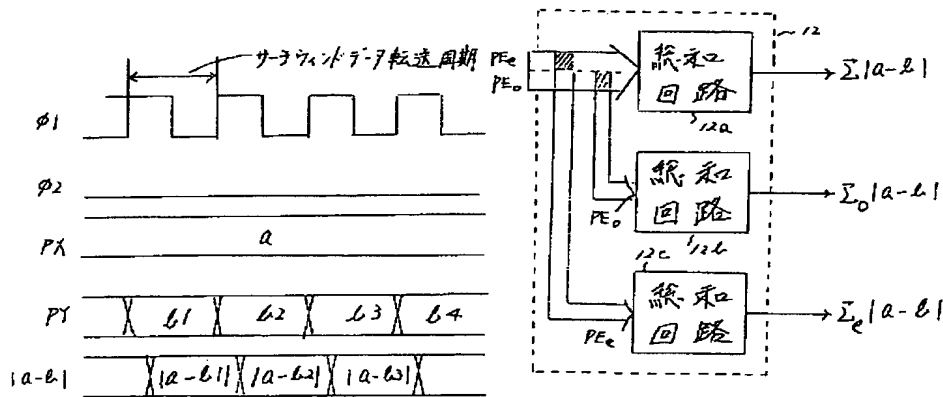 サーチウィンドデータ転送周期
φ1
φ2
PX
a
PY
b1
b2
b3
b4
|a-b|
|a-b1|
|a-b2|
|a-b3|
PEe
PEo
総和
回路
12a
12
Σ|a-b|
総和
回路
PEo
12b
Σo|a-b|
12c
総和
回路
PEe
Σe|a-b|